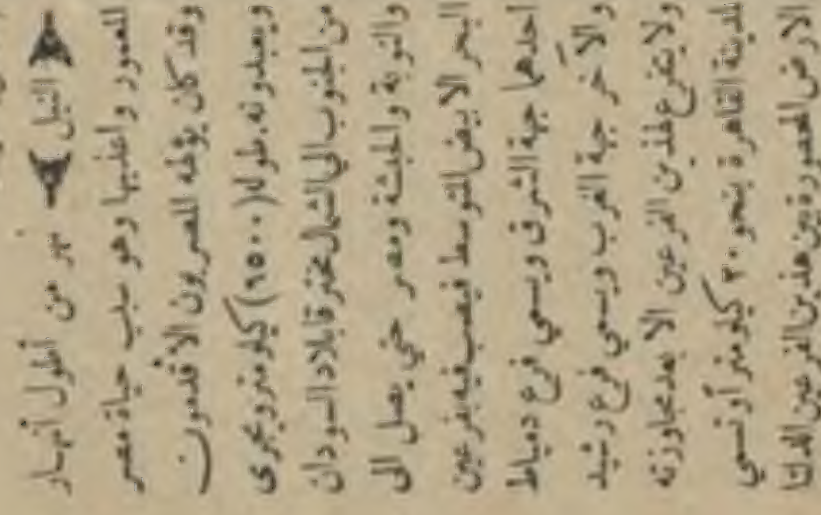 النيل نهر من أطول أنهار
المعمور وأعذبها وهو سبب حياة مصر
وقد كان يؤلهه المصريون الاقدمون
ويعبدونه. طوله (٦٥٠٠) كيلو متر ويجرى
من الجنوب الى الشمال مخترقا بلاد السودان
والنوبة والحبشة ومصر حتي يصل الى
البحر الابيض المتوسط فيصب فيه بفرعين
احدهما جهة الشرق ويسمي فرع دمياط
والآخر جهة الغرب ويسمي فرع رشيد
ولا يتفرع لهذين الفرعين الا بعد مجاوزته
لمدينة القاهرة بنحو ٢٠ كيلو متراً وتسمي
الارض المحصورة بين هذين الفرعين الدلتا